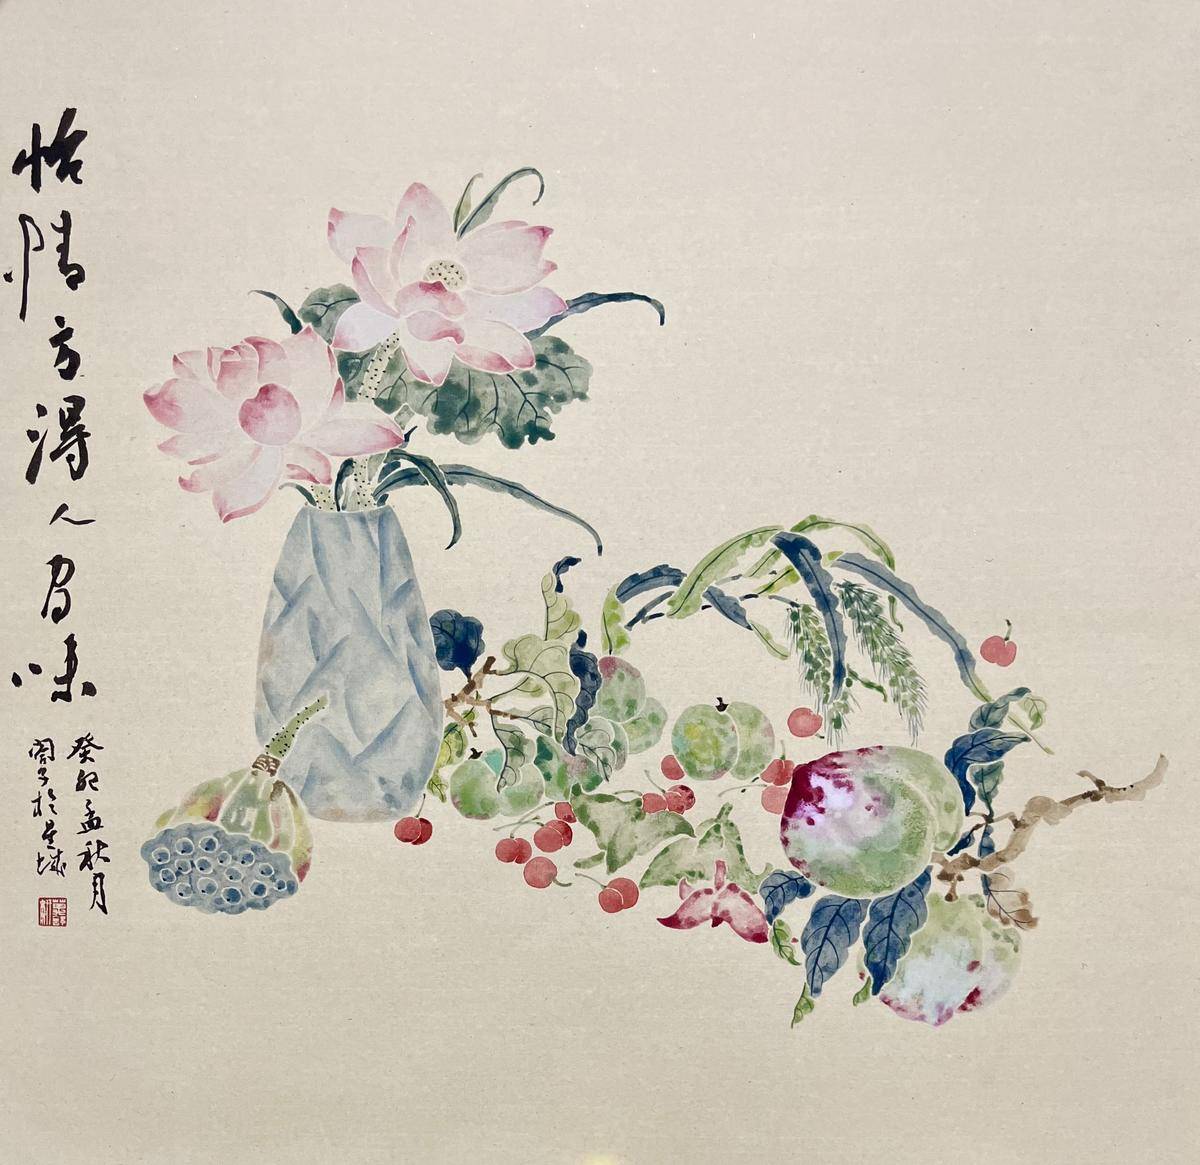 怡情方得人间味
癸卯孟秋月
阁子於星城